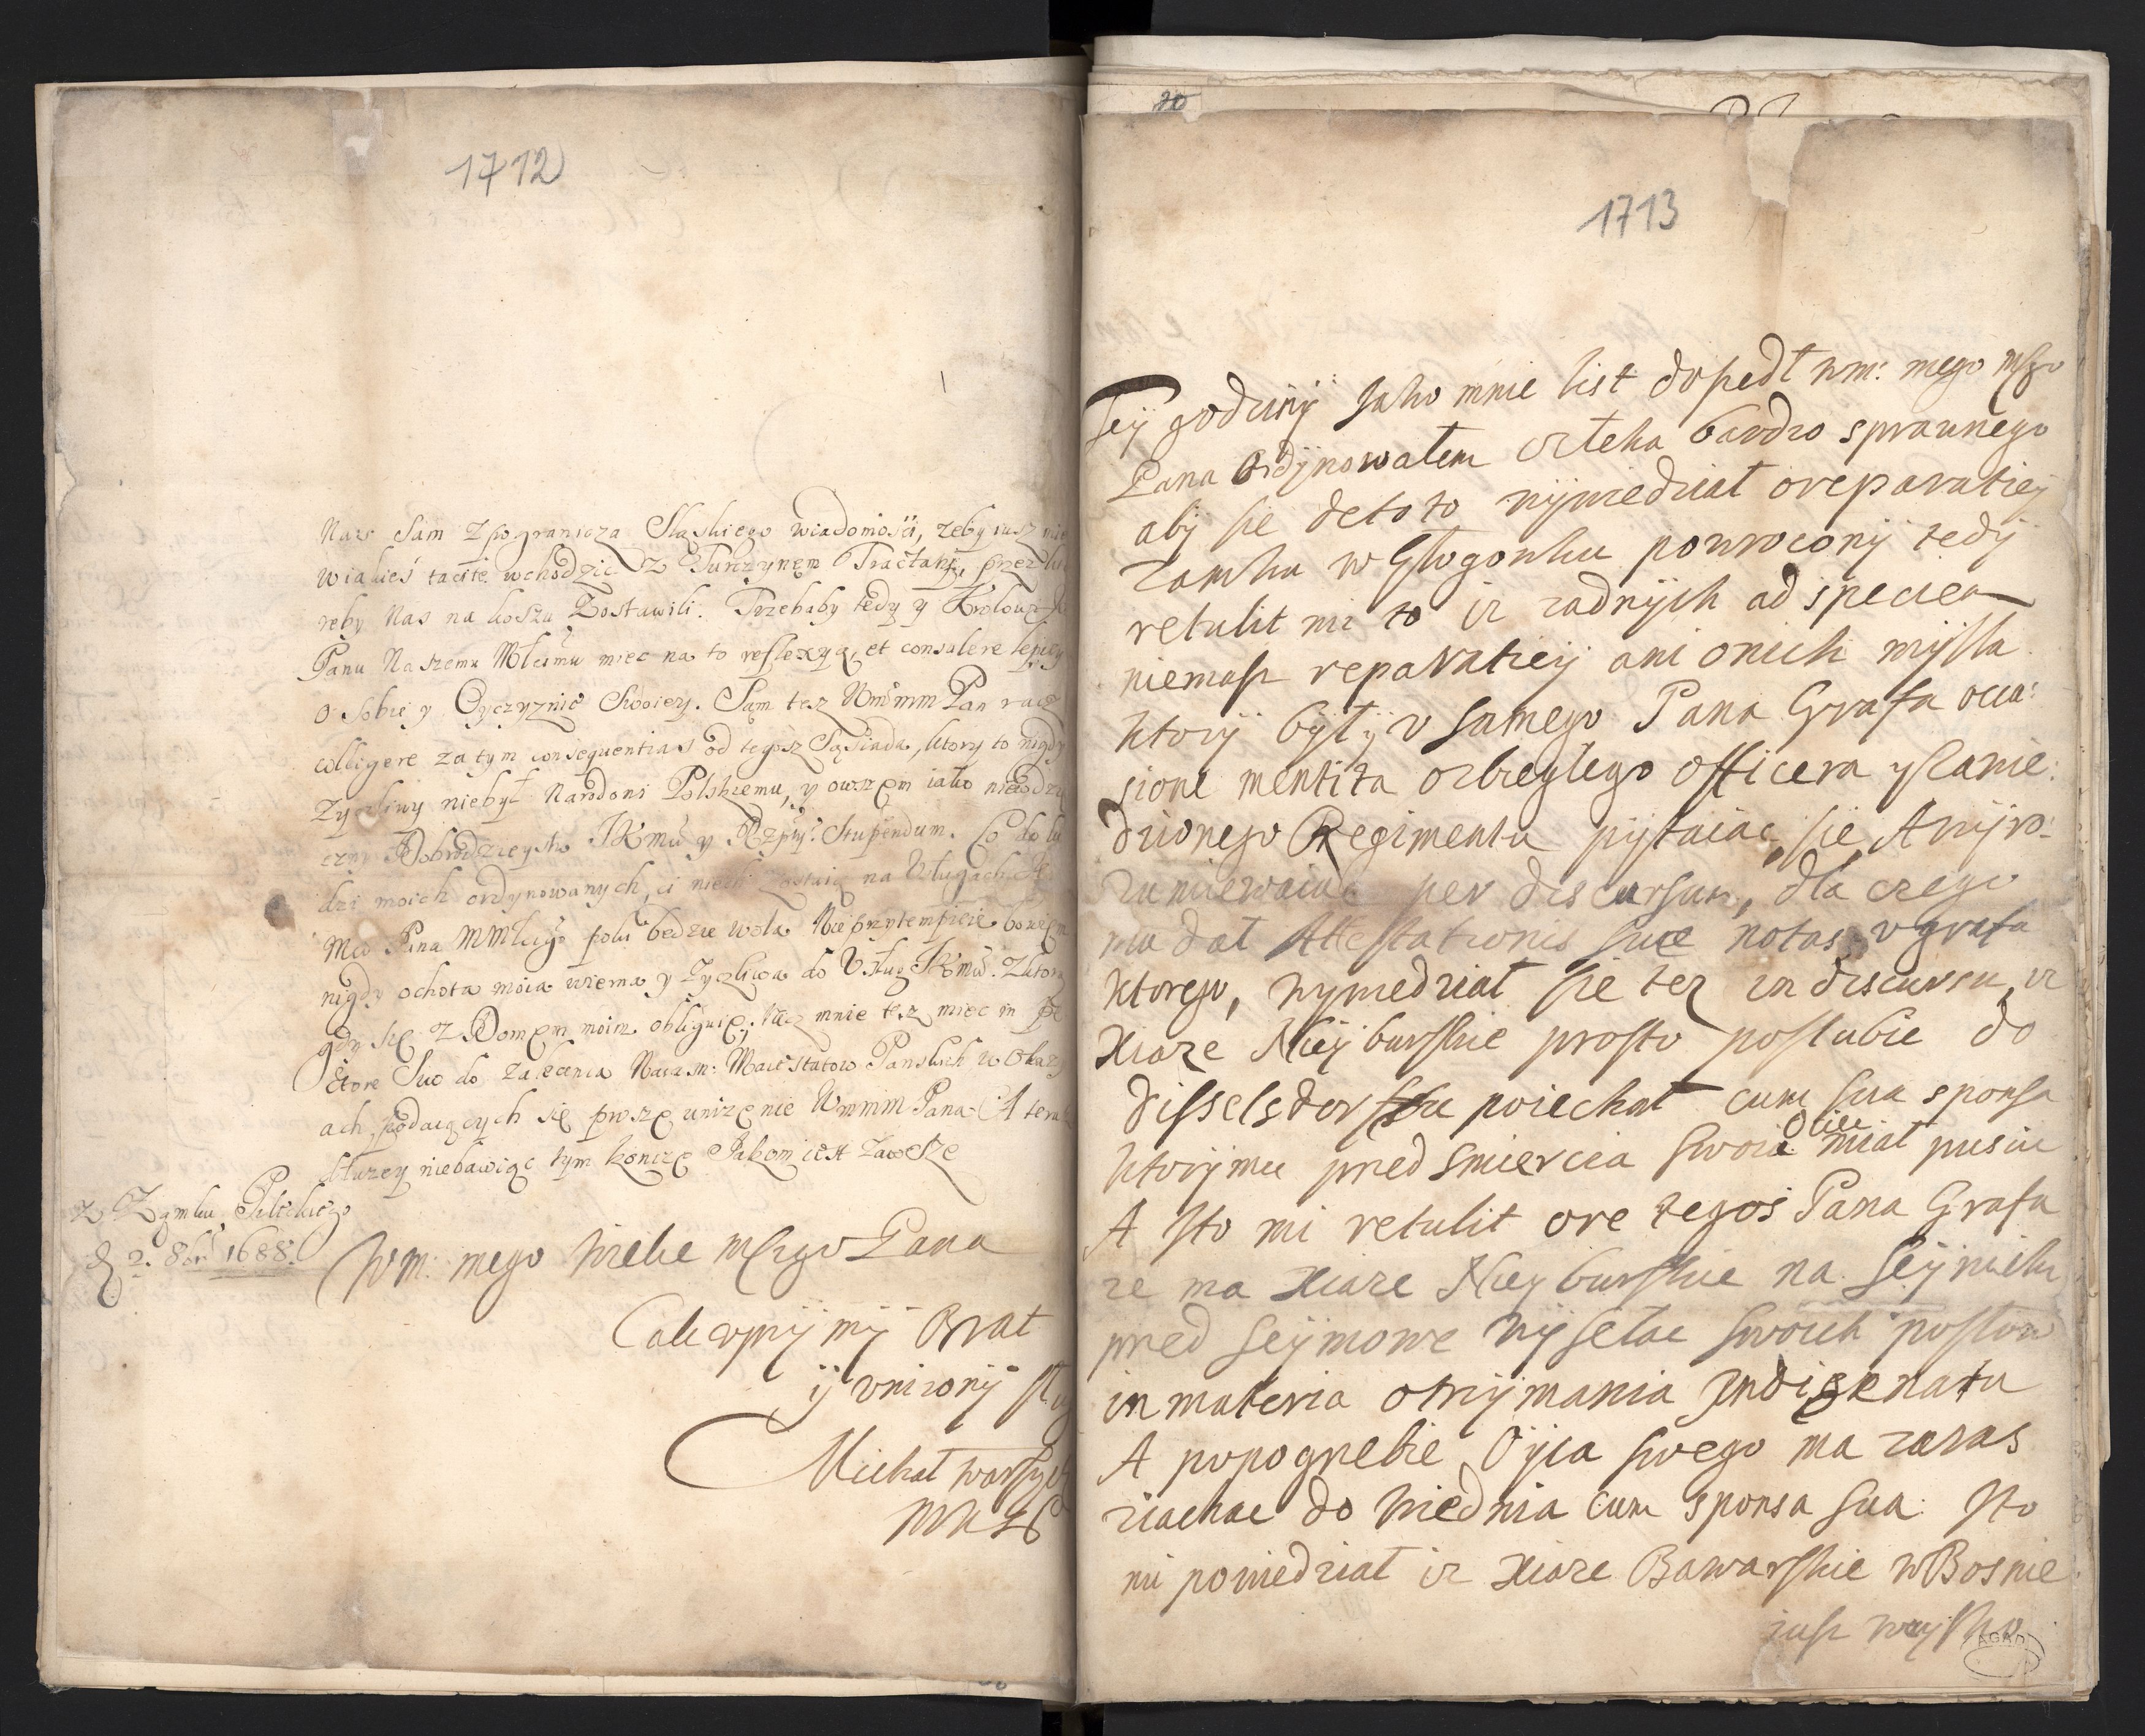 1712
Nasz Sam z pogranicza Sląskiego wiadomości, zeby iusz
wiakieś tacite wchodzic z Turczynem Tractaty, przez
reby Nas na koszu Zostawili. Trzebaby tedy y Krolowi
Panu Naszemu Młcimu miec na to reflexyą, et consulere lepiey
o Sobie y Oyczyznie Swoiey. Sąm tesz WmMm Pan racz
colligere za tym consequentias od tegosz Sąsiada, ktory to nigdy
Zyczliwy niebył Narodoni Polskiemu, y owszem iako
Dobrodzieystw JKmci y Rzpty Stupendum. Co do lu
dzi moich ordynowanych, ci niech zostaią na Usługach
Mci Pana MMłcigo poki będzie wola. Nieprzytempieie bowiem
nigdy ochota moia wierna y Zyczliwa do Usług JKmci. Z ktorą
gdy się z Domem moim obliguię, racz mnie tesz miec in
ctore Suo do zalecenia Nasm: Maiestatow Panskich w oka
ach podaiących się proszę unizenie Wmmm Pana. A tera
dłuzey niebawiąc tym konczę Jakom iest zawsze
z Zamku Pileckiego
d. 2. 8br 1688.
Wm. mego Wielce mscgo Pana
Cale uprzymy Brat
y unizony
Michał Warszyck
WKs
20
1713
Tey godziny Jako mnie list doszedł wm: mego mszo
Pana Ordynowałem człeka bardzo sprawnego
aby sie deto to wywiedział o reparatiey
zamku w Głogowku powrocony tedy
retulit mi to iz zadnych ad speciem
niemasz reparatiey ani onich mysla
ktory były v samego Pana Grafa occa:
sione mentita ozbiegłego officera y Canie:
dzionego Regimentu pytaiac sie A wyro:
zumiewaiac per discursum, dla czego
mu dał Attestationis suae notas v grafa
ktorego, wywiedział sie tez in discursu iz
Xiaze Neyburskie prosto po slubie do
Disselsdorffu poiechał cum sua sponsa
ktorymu pred smiercia swoia Ociec miał puscic
A Ato mi retulit ore tegos Pana Grafa
ze ma Xiaze Neyburskie na Seymiku
pred seymowe wysełac swoich posłow
in materia otrzymania Indigenatu
A po pogrzebie Oyca swego ma zaras
ziachac do Wiednia cum sponsa sua. Ato
mi powiedział iz Xiaze Bawarskie w Bosnie
iusz woysko
AGAD